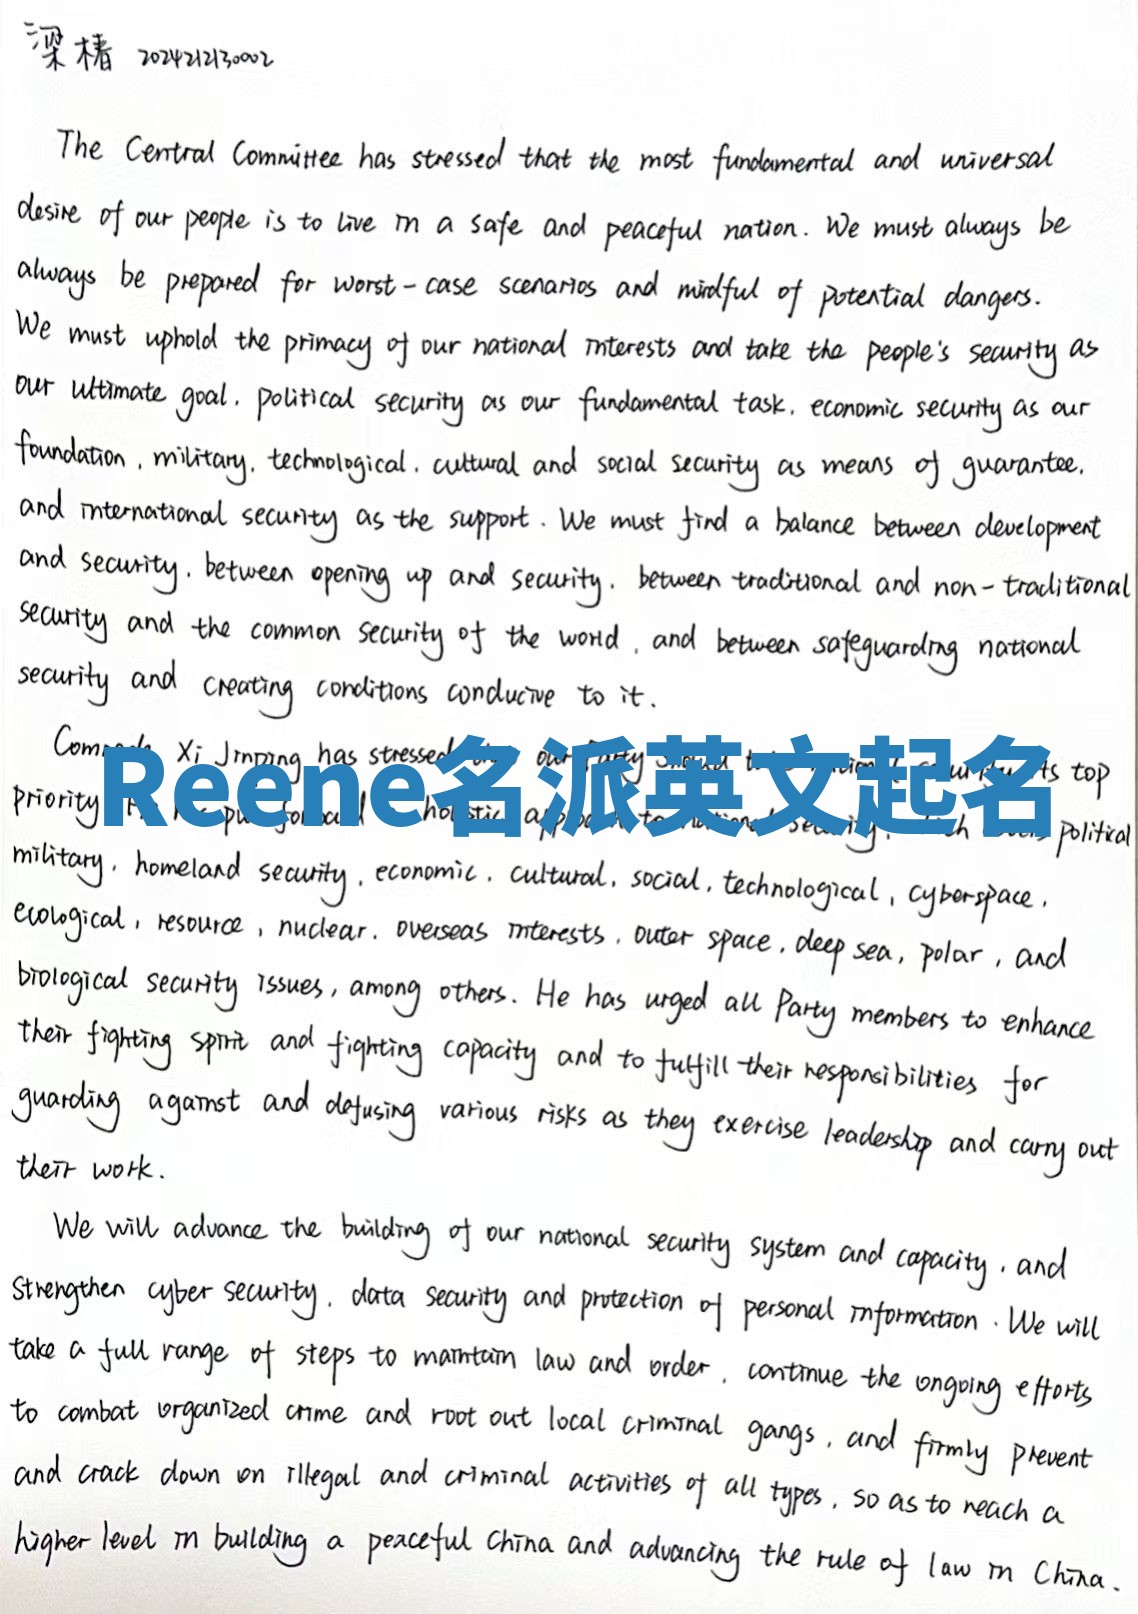 梁椿 2024212130002
The Central Committee has stressed that the most fundamental and universal
desire of our people is to live in a safe and peaceful nation. We must always be
always be prepared for worst-case scenarios and mindful of potential dangers.
We must uphold the primacy of our national interests and take the people's security as
our ultimate goal, political security as our fundamental task, economic security as our
foundation, military, technological, cultural and social security as means of guarantee,
and international security as the support. We must find a balance between development
and security, between opening up and security, between traditional and non-traditional
security and the common security of the world, and between safeguarding national
security and creating conditions conducive to it.
Xi Jinping has stressed our Party top
Reene名派英文起名
priority political
military, homeland security, economic, cultural, social, technological, cyberspace,
ecological, resource, nuclear, overseas interests, outer space, deep sea, polar, and
biological security issues, among others. He has urged all Party members to enhance
their fighting spirit and fighting capacity and to fulfill their responsibilities for
guarding against and defusing various risks as they exercise leadership and carry out
their work.
We will advance the building of our national security system and capacity, and
strengthen cyber security, data security and protection of personal information. We will
take a full range of steps to maintain law and order, continue the ongoing efforts
to combat organized crime and root out local criminal gangs, and firmly prevent
and crack down on illegal and criminal activities of all types, so as to reach a
higher level in building a peaceful China and advancing the rule of law in China.